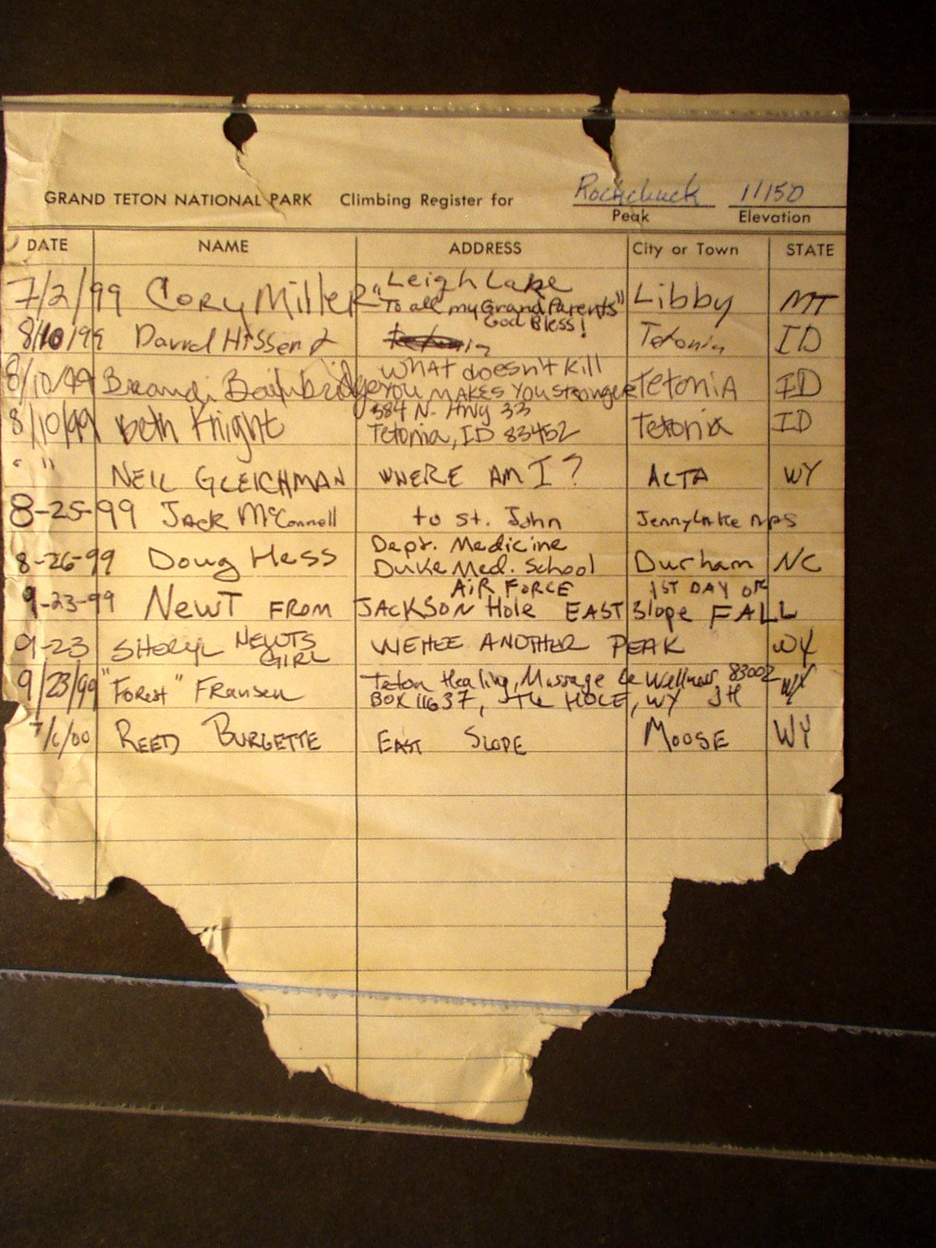 Rockchuck 11150
GRAND TETON NATIONAL PARK Climbing Register for Peak Elevation
DATE NAME ADDRESS City or Town STATE
7/2/99 Cory Miller Leigh Lake Libby MT
"To all my Grand Parents"
God Bless!
8/10/99 Tetonia ID
8/10/99 Brandi what doesn't kill TetoniA ID
YOU MAKES YOU stronger
8/10/99 Beth Knight 384 N. Hwy 33 Tetonia ID
Tetonia, ID 83452
" " NEIL GLEICHMAN WHERE AM I? ALTA WY
8-25-99 JACK McConnell to St. John Jenny Lake nps
8-26-99 Doug Hess Dept. Medicine Durham NC
Duke Med. School
AIR FORCE 1ST DAY OF
9-23-99 NEWT FROM JACKSON Hole EAST Slope FALL
9-23 SHERYL NEWTS GIRL WEHEE ANOTHER PEAK WY
9/23/99 "Forest" Fransen Teton Healing, Massage & Wellness 83002 WY
BOX 11637, HOLE, WY JH
7/6/00 REED BURGETTE EAST SLOPE MOOSE WY